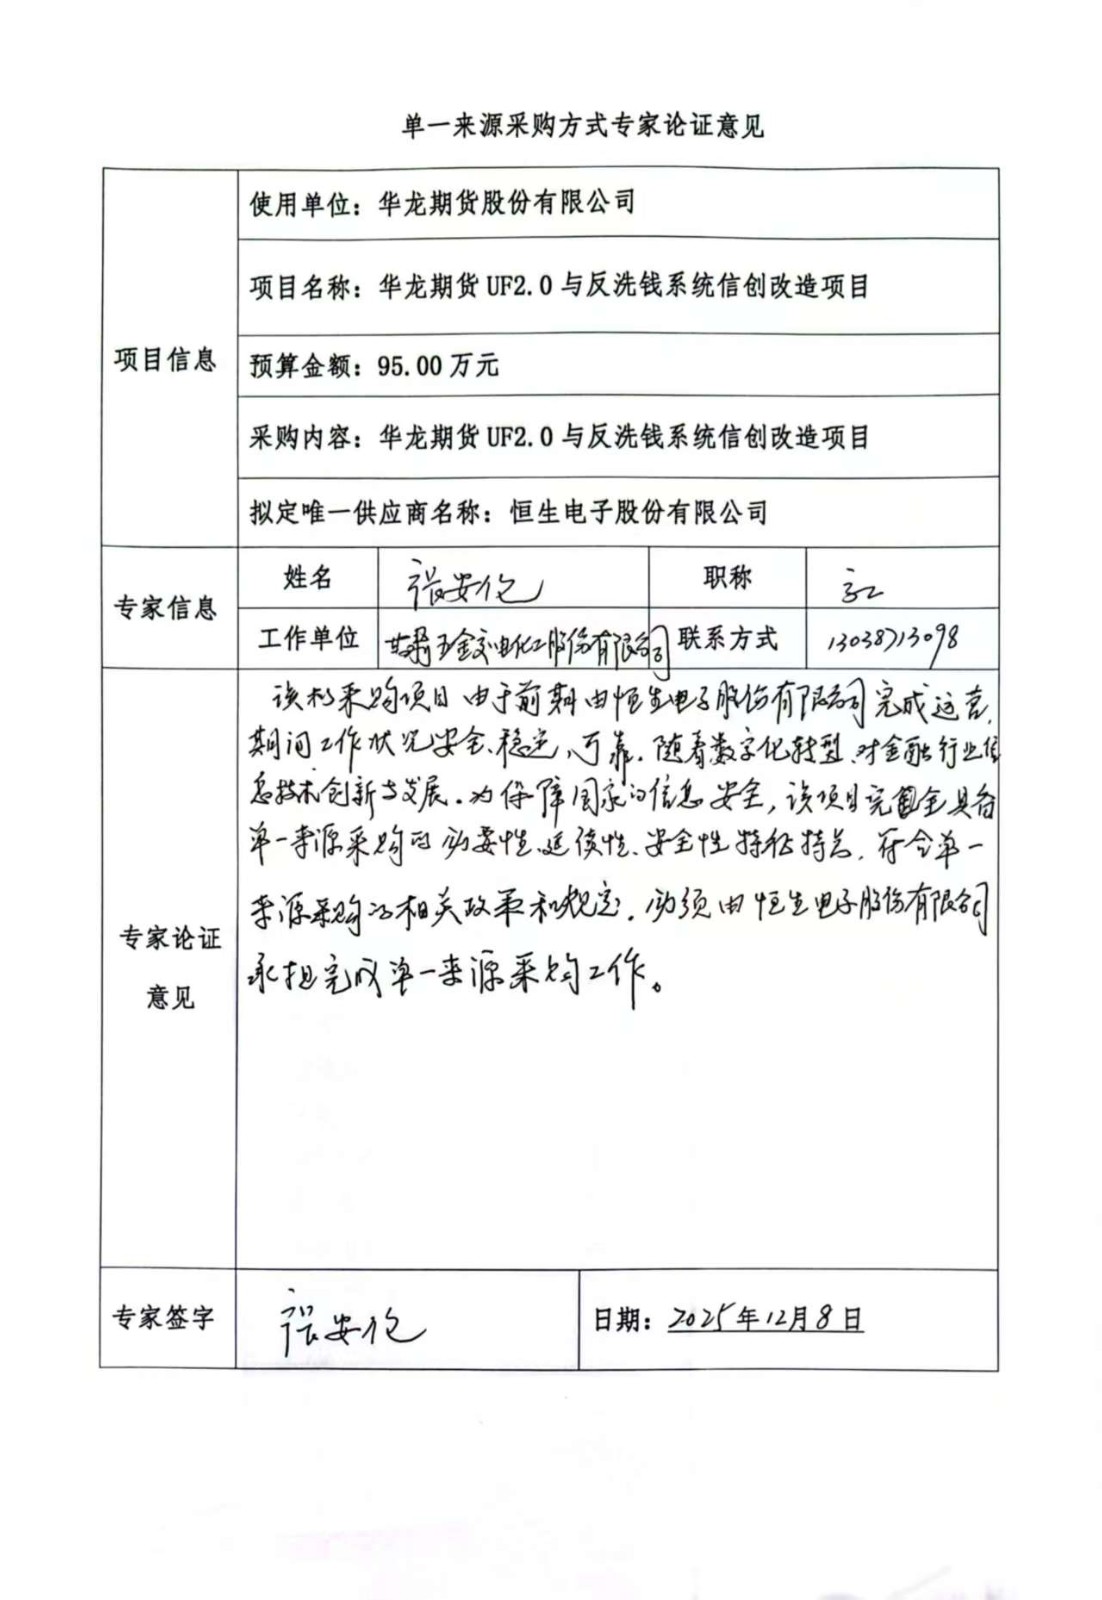 单一来源采购方式专家论证意见
项目信息
使用单位：华龙期货股份有限公司
项目名称：华龙期货UF2.0与反洗钱系统信创改造项目
预算金额：95.00万元
采购内容：华龙期货UF2.0与反洗钱系统信创改造项目
拟定唯一供应商名称：恒生电子股份有限公司
专家信息
姓名 张安伦 职称 高工
工作单位 甘肃五金交电化工股份有限公司 联系方式 13038713098
专家论证
意见
该 采购项目由于前期由恒生电子股份有限公司完成运营，
期间工作状况安全、稳定、可靠。随着数字化转型、对金融行业信
息技术创新与发展。为保障国家的信息安全，该项目完全具备
单一来源采购的必要性、延续性、安全性特征特点，符合单一
来源采购的相关政策和规定。必须由恒生电子股份有限公司
承担完成单一来源采购工作。
专家签字 张安伦 日期：2025年12月8日